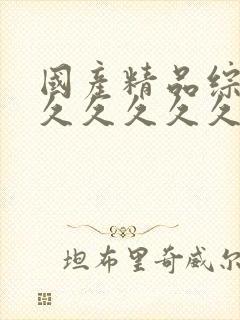 國產精品綜
久久久久久
坦布里奇威尔